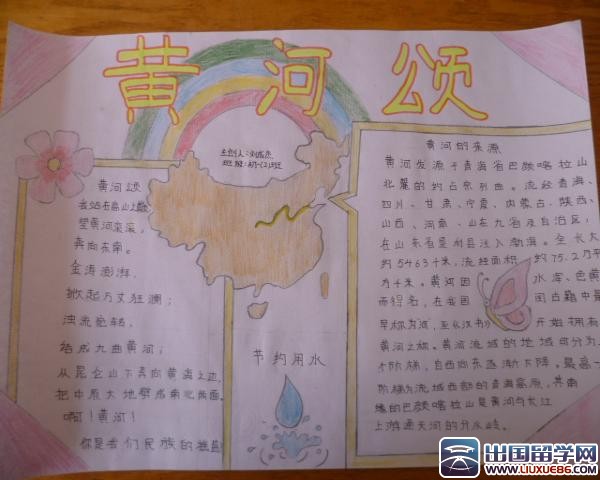 黄河颂
主创人:刘成杰
班级:初一(2)班
黄河颂
我站在高山之巅
望黄河滚滚,
奔向东南。
金涛澎湃,
掀起万丈狂澜;
浊流宛转,
结成九曲黄河;
从昆仑山下奔向黄海之边
把中原大地劈成南北两面。
啊!黄河!
你是我们民族的摇篮
节约用水
黄河的来源
黄河发源于青海省巴颜喀拉山
北麓的约古宗列曲。流经青海、
四川、甘肃、宁夏、内蒙古、陕西、
山西、河南、山东九省及自治区,
在山东省垦利县注入渤海。全长大
约5463千米,流经面积约75.2万平
方千米。黄河因水浑、色黄
而得名,在我国古籍中最
早称为河,至《汉书》开始拥有
黄河之称。黄河流域的地域可分为
个阶梯,自西向东逐渐下降。最高一
阶梯为流域西部的青海高原,其南
缘的巴颜喀拉山是黄河与长江
上游通天河的分水岭。
出国留学网
www.liuxue86.com